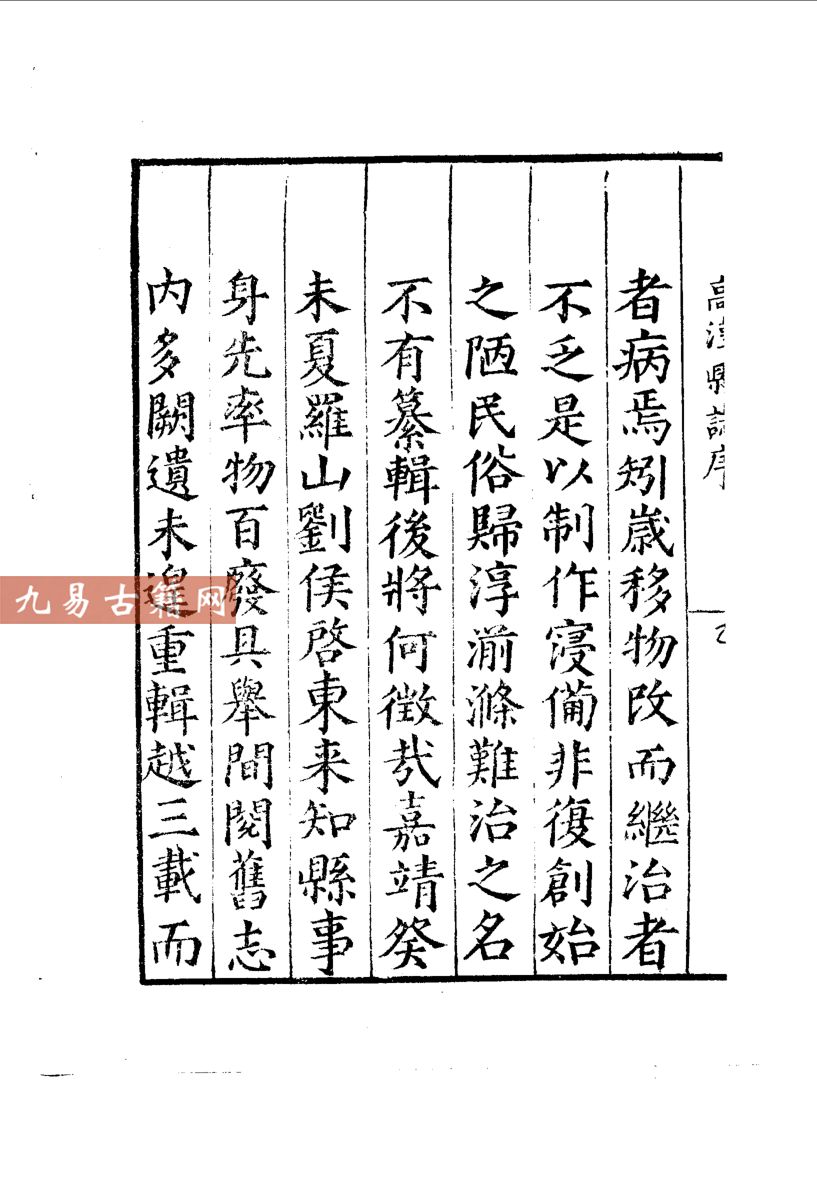 高淳縣誌序
者病焉矧歲移物改而繼治者
不乏是以制作寖備非復創始
之陋民俗歸淳湔滌難治之名
不有纂輯後將何徵㢤嘉靖癸
未夏羅山劉侯啓東来知縣事
身先率物百廢具舉間閱舊志
内多闕遺未遑重輯越三載而
九易古籍网